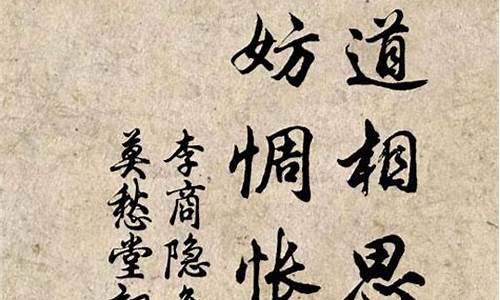 道相思
妨惆怅
李商隐
莫愁堂